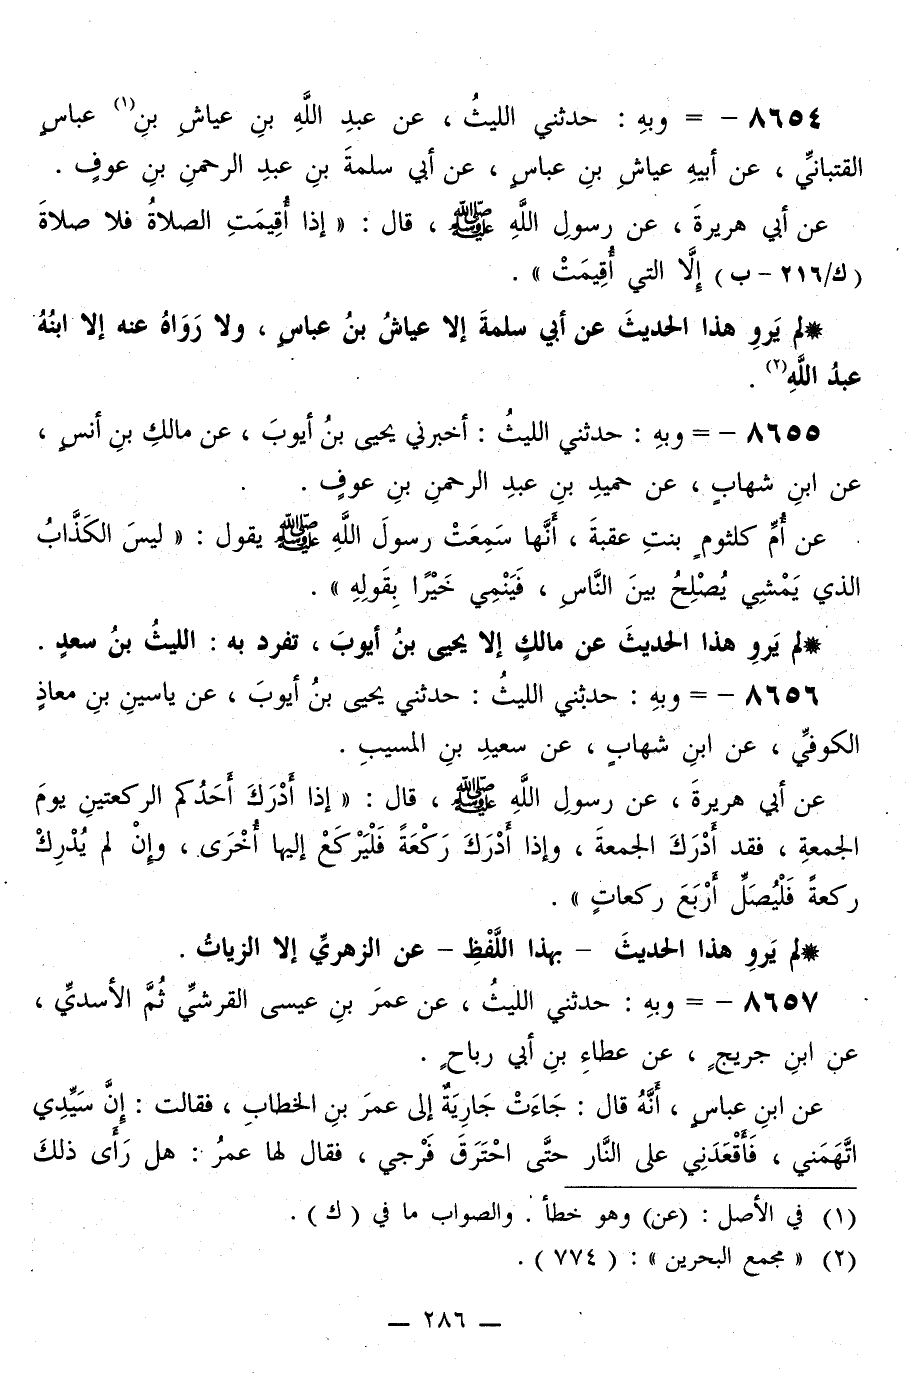 ٨٦٥٤ – = وبهِ : حدثني الليثُ ، عن عبدِ اللَّهِ بنِ عياشِ بنِ(١) عباسٍ
القتبانيِّ ، عن أبيهِ عياشِ بنِ عباسٍ ، عن أبي سلمةَ بنِ عبدِ الرحمنِ بنِ عوفٍ .
عن أبي هريرةَ ، عن رسولِ اللَّهِ ﷺ ، قال : « إذا أُقِيمَتِ الصلاةُ فلا صلاةَ
( ك/٢١٦ – ب ) إِلَّا التي أُقِيمَتْ » .
* لم يَروِ هذا الحديثَ عن أبي سلمةَ إلا عياشُ بنُ عباسٍ ، ولا رَوَاهُ عنه إلا ابنُهُ
عبدُ اللَّهِ(٢) .
٨٦٥٥ – = وبهِ : حدثني الليثُ : أخبرني يحيى بنُ أيوبَ ، عن مالكِ بنِ أنسٍ ،
عن ابنِ شهابٍ ، عن حميدِ بنِ عبدِ الرحمنِ بنِ عوفٍ .
عن أُمِّ كلثومٍ بنتِ عقبةَ ، أَنَّها سَمِعَتْ رسولَ اللَّهِ ﷺ يقول : « ليسَ الكَذَّابُ
الذي يَمْشِي يُصْلِحُ بينَ النَّاسِ ، فَيَنْمِي خَيْرًا بِقَولِهِ » .
* لم يَروِ هذا الحديثَ عن مالكٍ إلا يحيى بنُ أيوبَ ، تفرد به : الليثُ بنُ سعدٍ .
٨٦٥٦ – = وبهِ : حدثني الليثُ : حدثني يحيى بنُ أيوبَ ، عن ياسينِ بنِ معاذٍ
الكوفيِّ ، عن ابنِ شهابٍ ، عن سعيدِ بنِ المسيبِ .
عن أبي هريرةَ ، عن رسولِ اللَّهِ ﷺ ، قال : « إذا أَدْرَكَ أَحَدُكم الركعتينِ يومَ
الجمعةِ ، فقد أَدْرَكَ الجمعةَ ، وإذا أَدْرَكَ رَكْعَةً فَلْيَرْكَعْ إليها أُخْرَى ، وإِنْ لم يُدْرِكْ
ركعةً فَلْيُصَلِّ أَرْبَعَ ركعاتٍ » .
* لم يَروِ هذا الحديثَ – بهذا اللَّفْظِ – عن الزهريِّ إلا الزياتُ .
٨٦٥٧ – = وبهِ : حدثني الليثُ ، عن عمرَ بنِ عيسى القرشيِّ ثُمَّ الأسديِّ ،
عن ابنِ جريجٍ ، عن عطاءِ بنِ أبي رباحٍ .
عن ابنِ عباسٍ ، أَنَّهُ قال : جَاءَتْ جَارِيَةٌ إلى عمرَ بنِ الخطابِ ، فقالت : إِنَّ سَيِّدِي
اتَّهَمَني ، فَأَقْعَدَنِي على النَّار حتَّى احْتَرَقَ فَرْجي ، فقال لها عمرُ : هل رَأَى ذلكَ
(١) في الأصل : (عن) وهو خطأ . والصواب ما في ( ك ) .
(٢) « مجمع البحرين » : ( ٧٧٤ ) .
— ٢٨٦ —